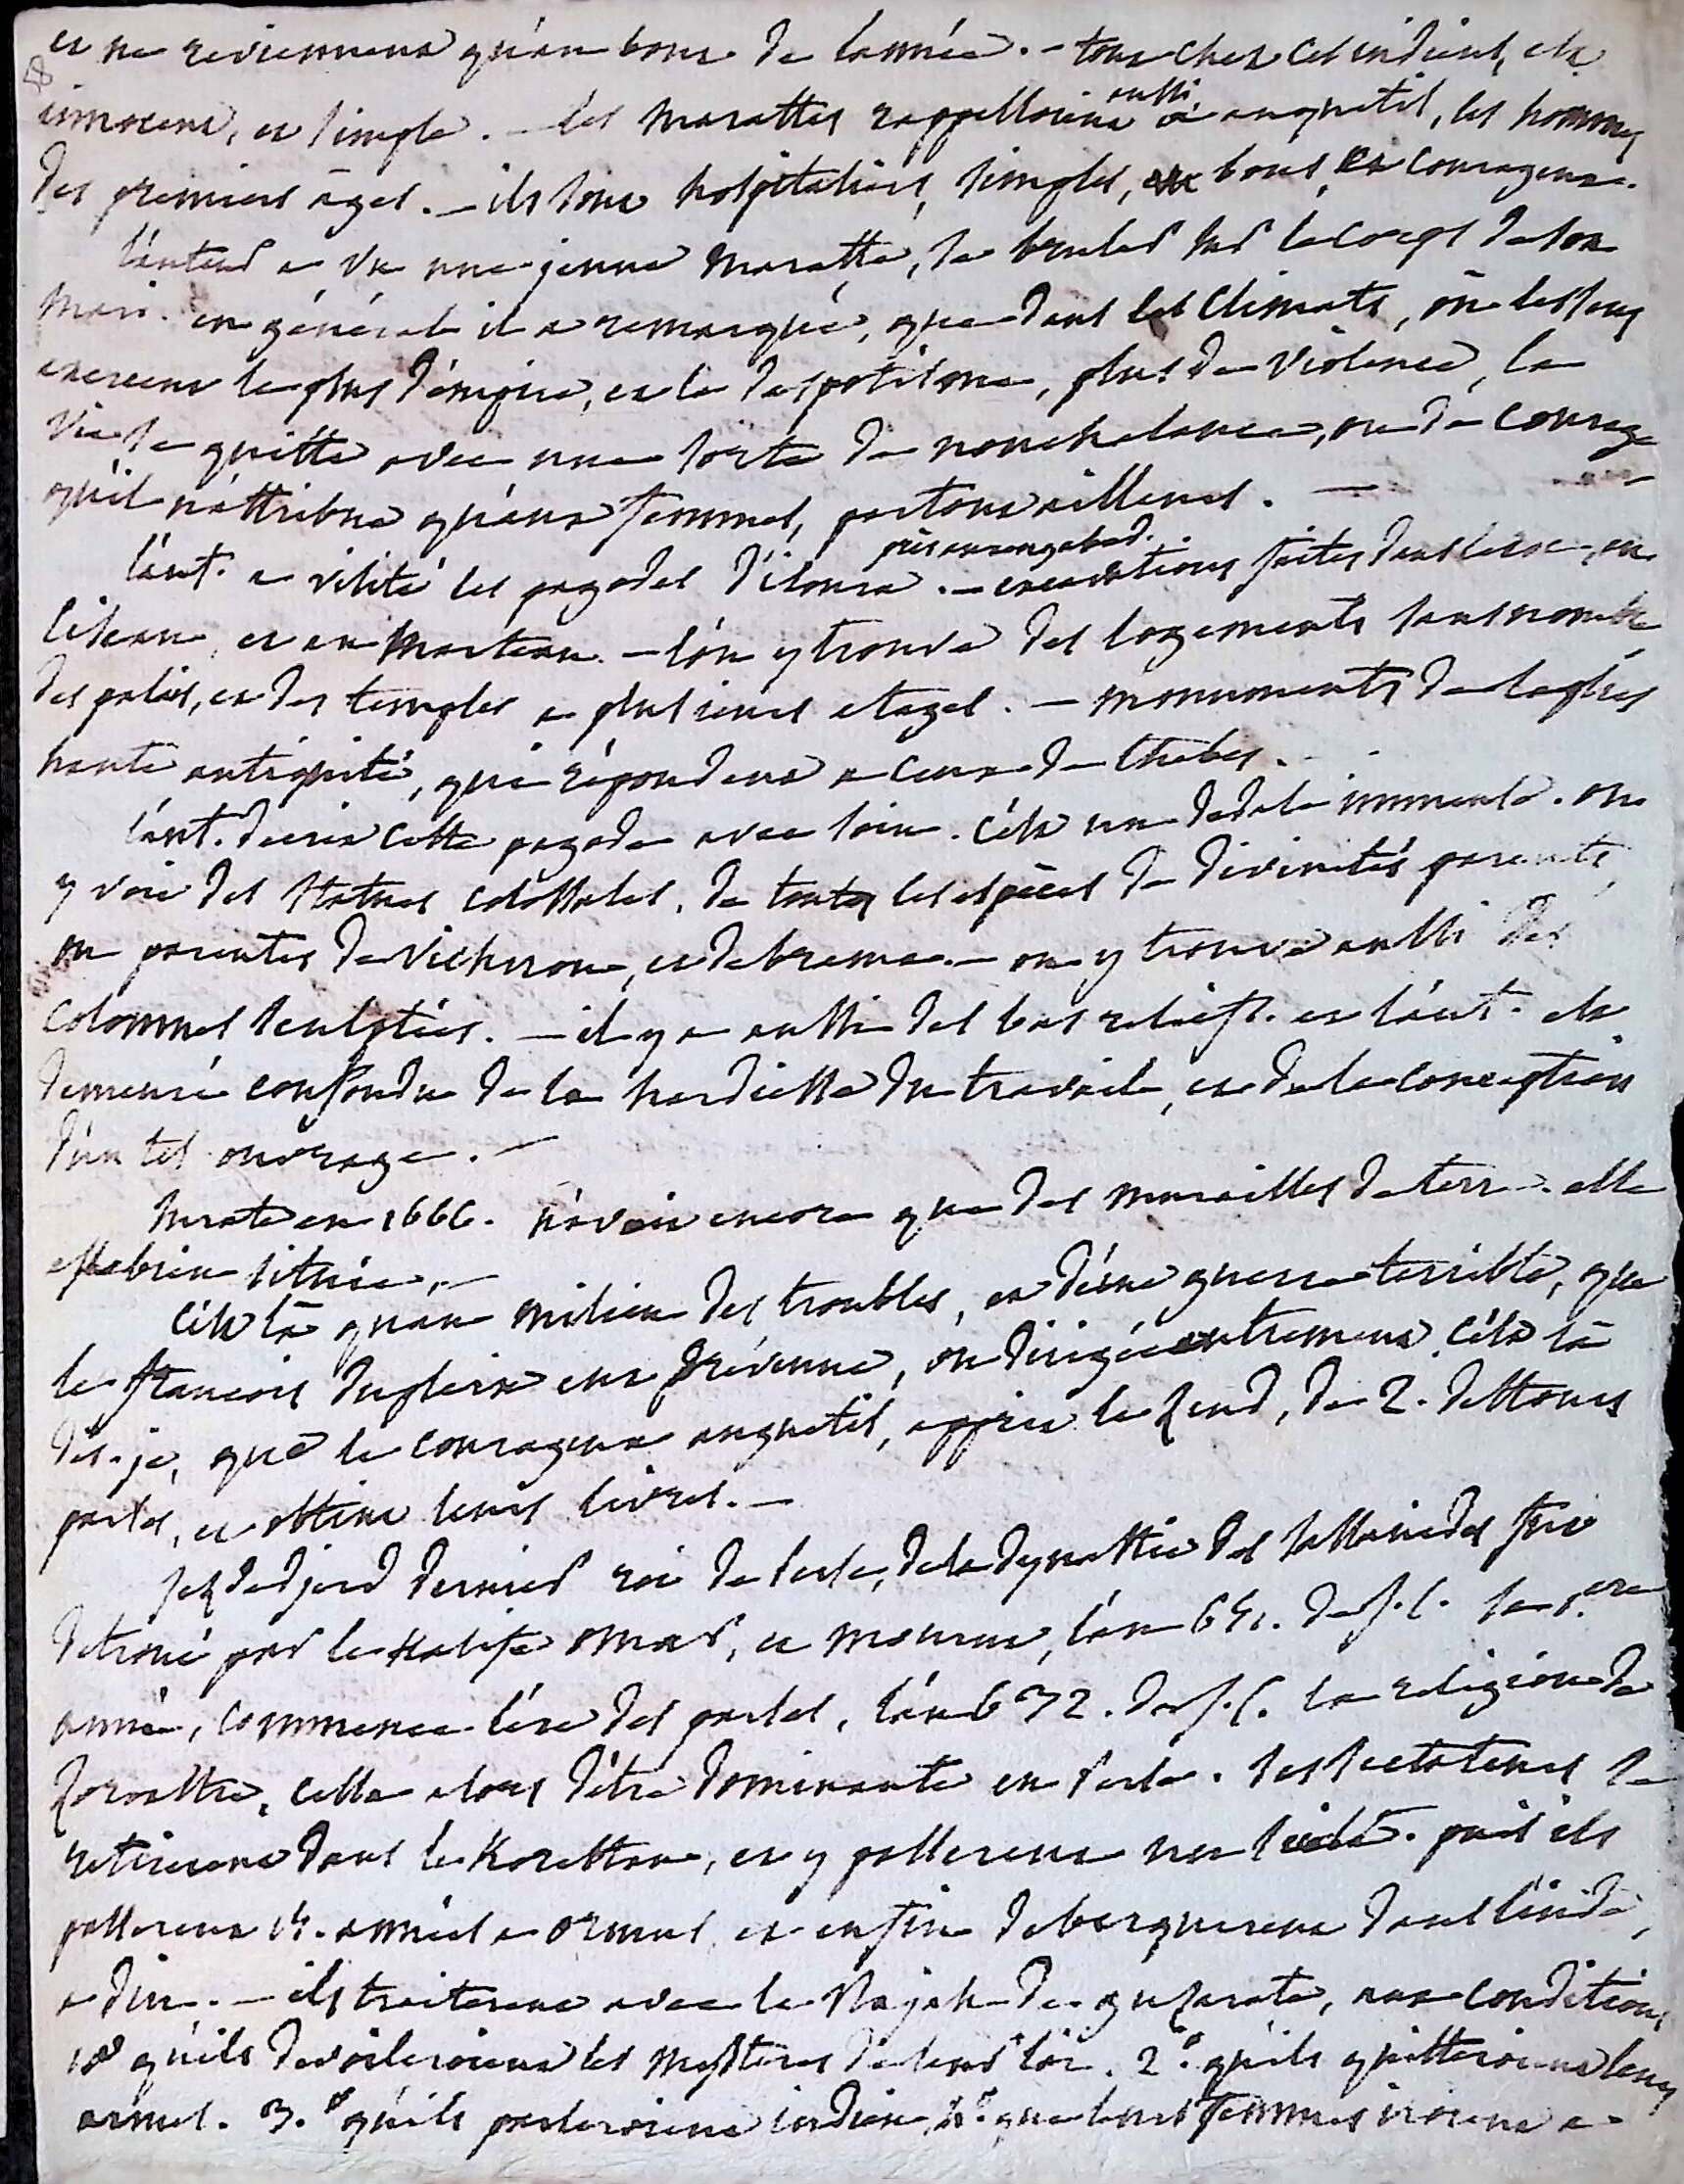 et ne reviennent qu'au bout de l'année. - tout chez ces indiens, est
innocent, et simple. - les marattes rappelloient aussi à anquetil, les hommes
des premiers âges. - ils sont hospitaliers, simples, bons, et courageux.
l'auteur a vu une jeune maratte, se bruler sur le corps de son
mari. en général il a remarqué, que dans les climats, où les sens
exercent le plus d'empire, et le despotisme, plus de violence, la
vie se quitte avec une sorte de nonchalance, ou de courage
qu'il n'attribue qu'aux femmes, partout ailleurs. -
l'aut. a visité les pagodes d'iloura près aurengabad. - excavations faites dans le roc, au
ciseau, et au marteau. - l'on y trouve des logements sans nombre,
des palais, et des temples a plusieurs etages. - monuments de la plus
haute antiquité, qui répondent a ceux de thebes. -
l'aut. decrit cette pagode avec soin. c'est un dedale immense. on
y voit des statues colossales, de toutes les espèces de divinités parents,
ou parentes de vichnou, et de brama. - on y trouve aussi des
colonnes sculptées. - il y a aussi des bas reliefs. et l'aut. est
demeuré confondu de la hardiesse du travail, et de la conception
d'un tel ouvrage. -
surate en 1666. n'avoit encore que des murailles de terre. elle
est bien située. -
c'est là qu'au milieu des troubles, et d'une guerre terrible, que
le françois dupleix eut prévenue, ou dirigée autrement, c'est là
dis-je, que le courageux anquetil, apprit le zend, de 2. destours
parses, et obtint leurs livres. -
jezdedjerd dernier roi de perse, de la dynastie des sassanides fut
detroné par le kalife omar, et mourut, l'an 651. de j. c. sa 1.ere
année, commence l'ère des parses, l'an 632. de j. c. la religion de
zoroastre, cessa alors d'être dominante en perse. ses sectateurs se
retirerent dans le korassan, et y passerent un siecle. puis ils
passerent 15. années a ormus, et enfin debarquerent dans l'inde,
a diu. - ils traiterent avec le Rajah de guzarate, aux conditions
1º qu'ils devoileroient les mysteres de leur loi. 2.º qu'ils quitteroient leurs
armes. 3.º qu'ils parleroient indien, 4.º que leurs femmes iroient a